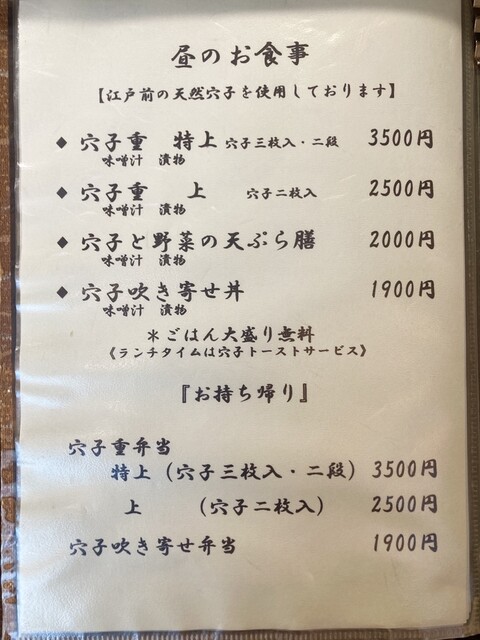 昼のお食事
【江戸前の天然穴子を使用しております】
◆ 穴子重 特上 穴子三枚入・二段 3500円
味噌汁 漬物
◆ 穴子重 上 穴子二枚入 2500円
味噌汁 漬物
◆ 穴子と野菜の天ぷら膳 2000円
味噌汁 漬物
◆ 穴子吹き寄せ丼 1900円
味噌汁 漬物
＊ごはん大盛り無料
《ランチタイムは穴子トーストサービス》
『お持ち帰り』
穴子重弁当
特上 (穴子三枚入・二段) 3500円
上 (穴子二枚入) 2500円
穴子吹き寄せ弁当 1900円